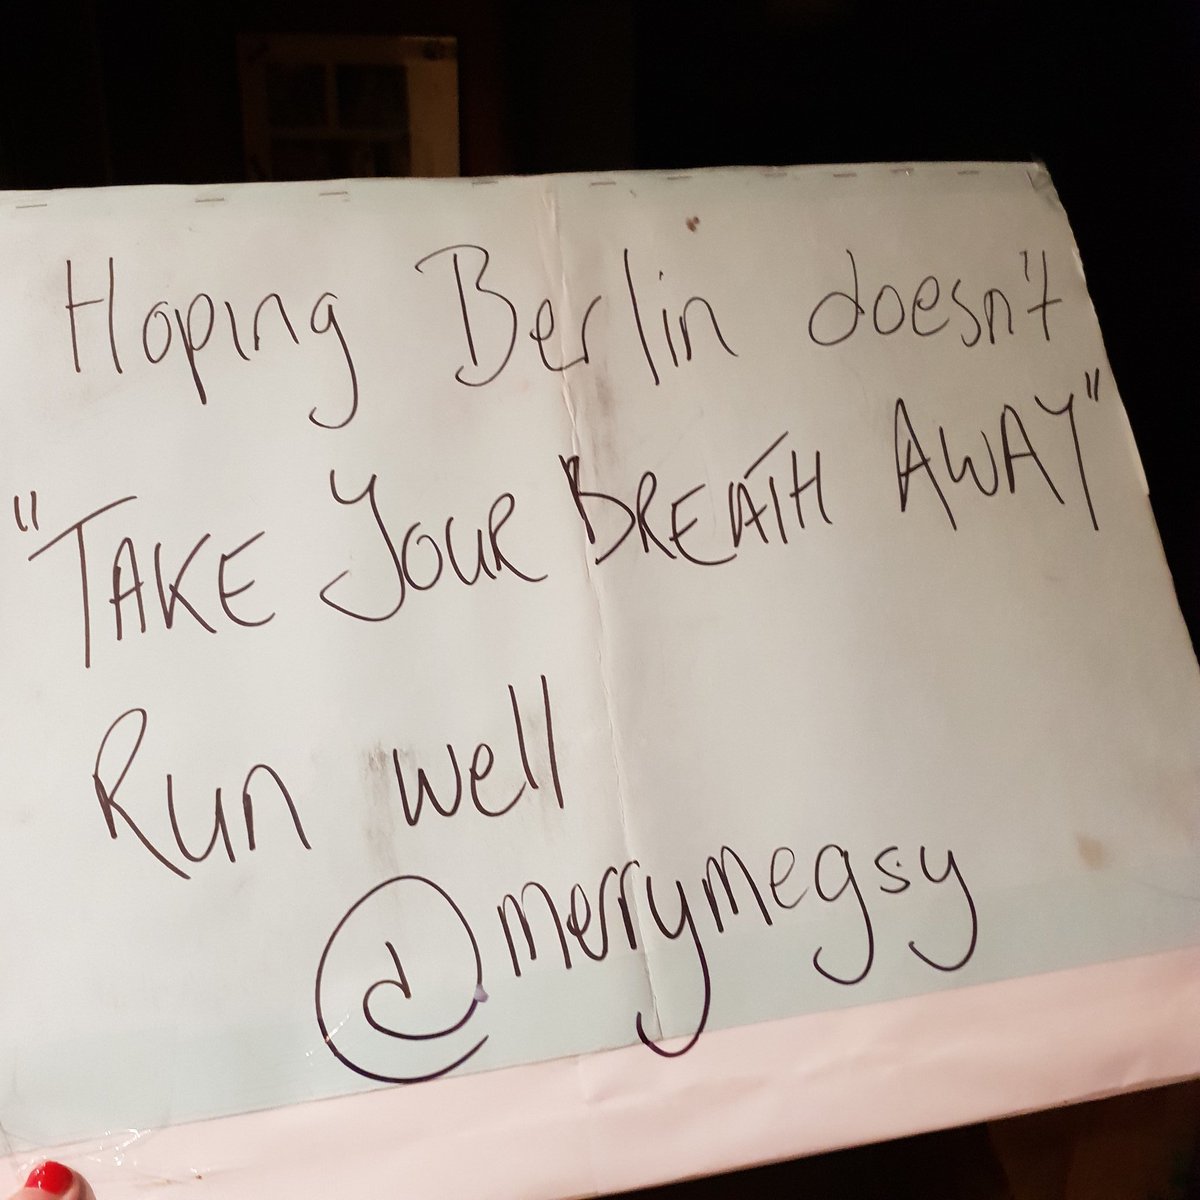 Hoping Berlin doesn't
"TAKE YOUR BREATH AWAY"
Run well
@merrymegsy